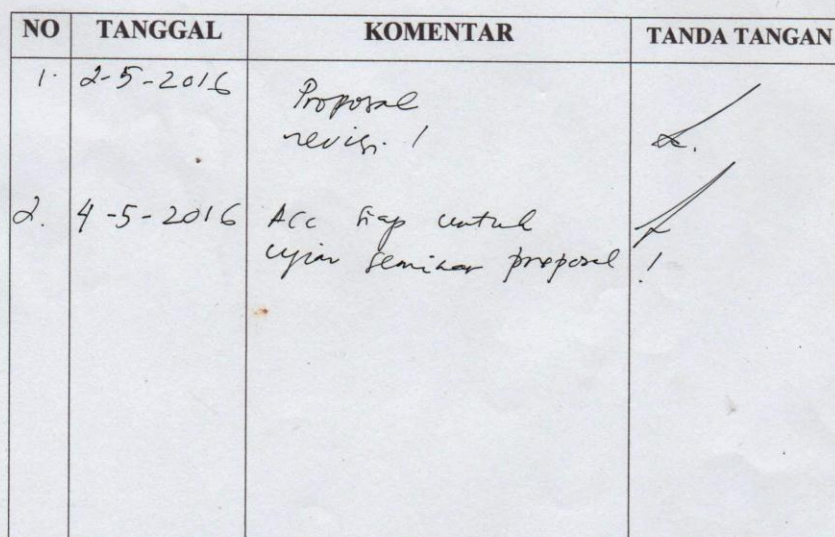 NO TANGGAL KOMENTAR TANDA TANGAN
1. 2-5-2016 Proposal
revisi !
2. 4-5-2016 Acc siap untuk
ujian seminar proposal !